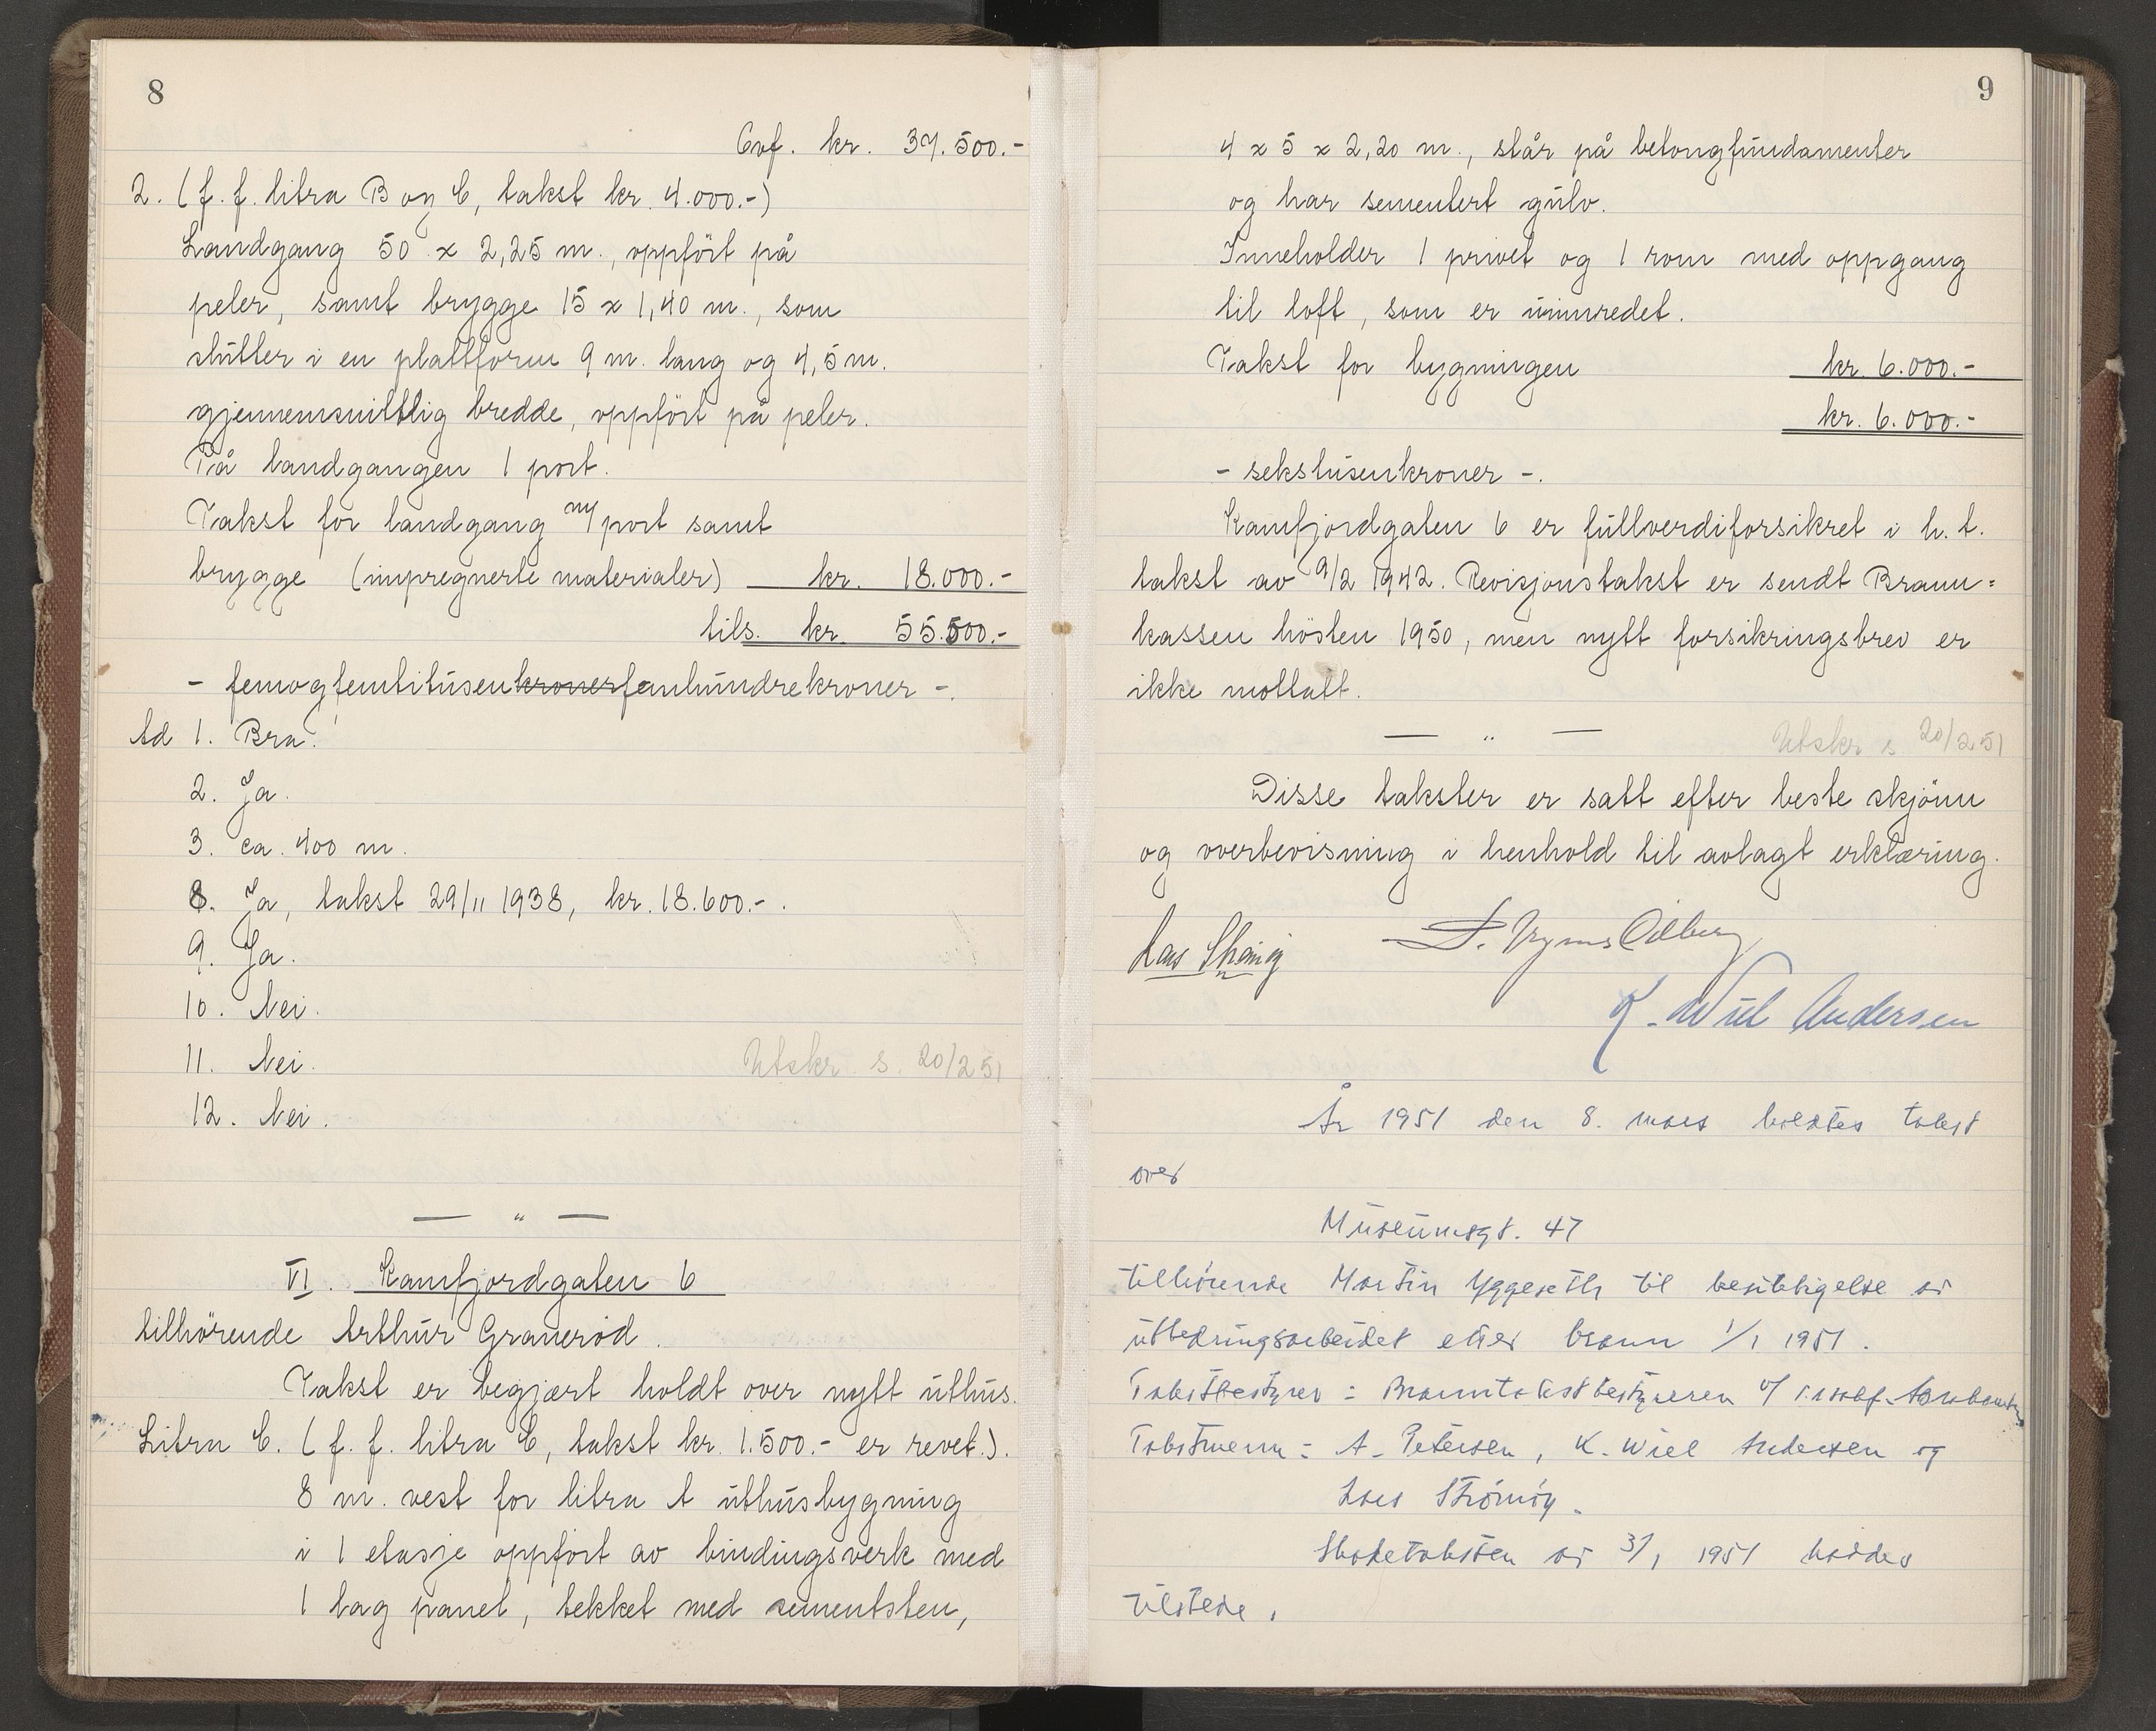 8
Ovf. kr. 37.500.-
2. (f. f. litra B og C, takst kr. 4.000.-)
Landgang 50 x 2,25 m., oppført på
peler, samt brygge 15 x 1,40 m., som
slutter i en plattform 9 m. lang og 4,5 m.
gjennemsnittlig bredde, oppført på peler.
På landgangen 1 port.
Takst for landgang m/port samt
brygge (impregnerte materialer) kr. 18.000.-
tils. kr. 55.500.-
- femogfemtitusenkronerfemhundrekroner -.
Ad 1. Bra.
2. Ja.
3. ca. 400 m.
8. Ja, takst 29/11 1938, kr. 18.600.-.
9. Ja.
10. Nei.
11. Nei.
Utskr. s. 20/2 51
12. Nei.
— " —
VI. Kamfjordgaten 6
tilhörende Arthur Graneröd.
Takst er begjært holdt over nytt uthus.
Litra C. (f. f. litra C, takst kr. 1.500.- er revet.).
8 m. vest for litra A uthusbygning
i 1 etasje oppfört av bindingsverk med
1 lag panel, tekket med sementsten,
9
4 x 5 x 2,20 m., står på betongfundamenter
og har sementert gulv.
Inneholder 1 privet og 1 rom med oppgang
til loft, som er uinnredet.
Takst for bygningen kr. 6.000.-
kr. 6.000.-
- sekstusenkroner -.
Kamfjordgaten 6 er fullverdiforsikret i h. t.
takst av 9/2 1942. Revisjonstakst er sendt Brann=
kassen hösten 1950, men nytt forsikringsbrev er
ikke mottatt.
— " —
Utskr s 20/2 51
Disse takster er satt efter beste skjönn
og overbevisning i henhold til avlagt erklæring.
K. Wiel Andersen
År 1951 den 8. mars holdtes takst
over
Museumsgt. 47
tilhörende Martin Yggeseth til besiktigelse av
utbedringsarbeidet etter brann 1/1 1951.
Takstbestyrer: Branntakstbestyreren v/
Takstmenn: A. Petersen, K. Wiel Andersen og
Lars Strömöy.
Skadetaksten av 3/1 1951 haddes
tilstede.